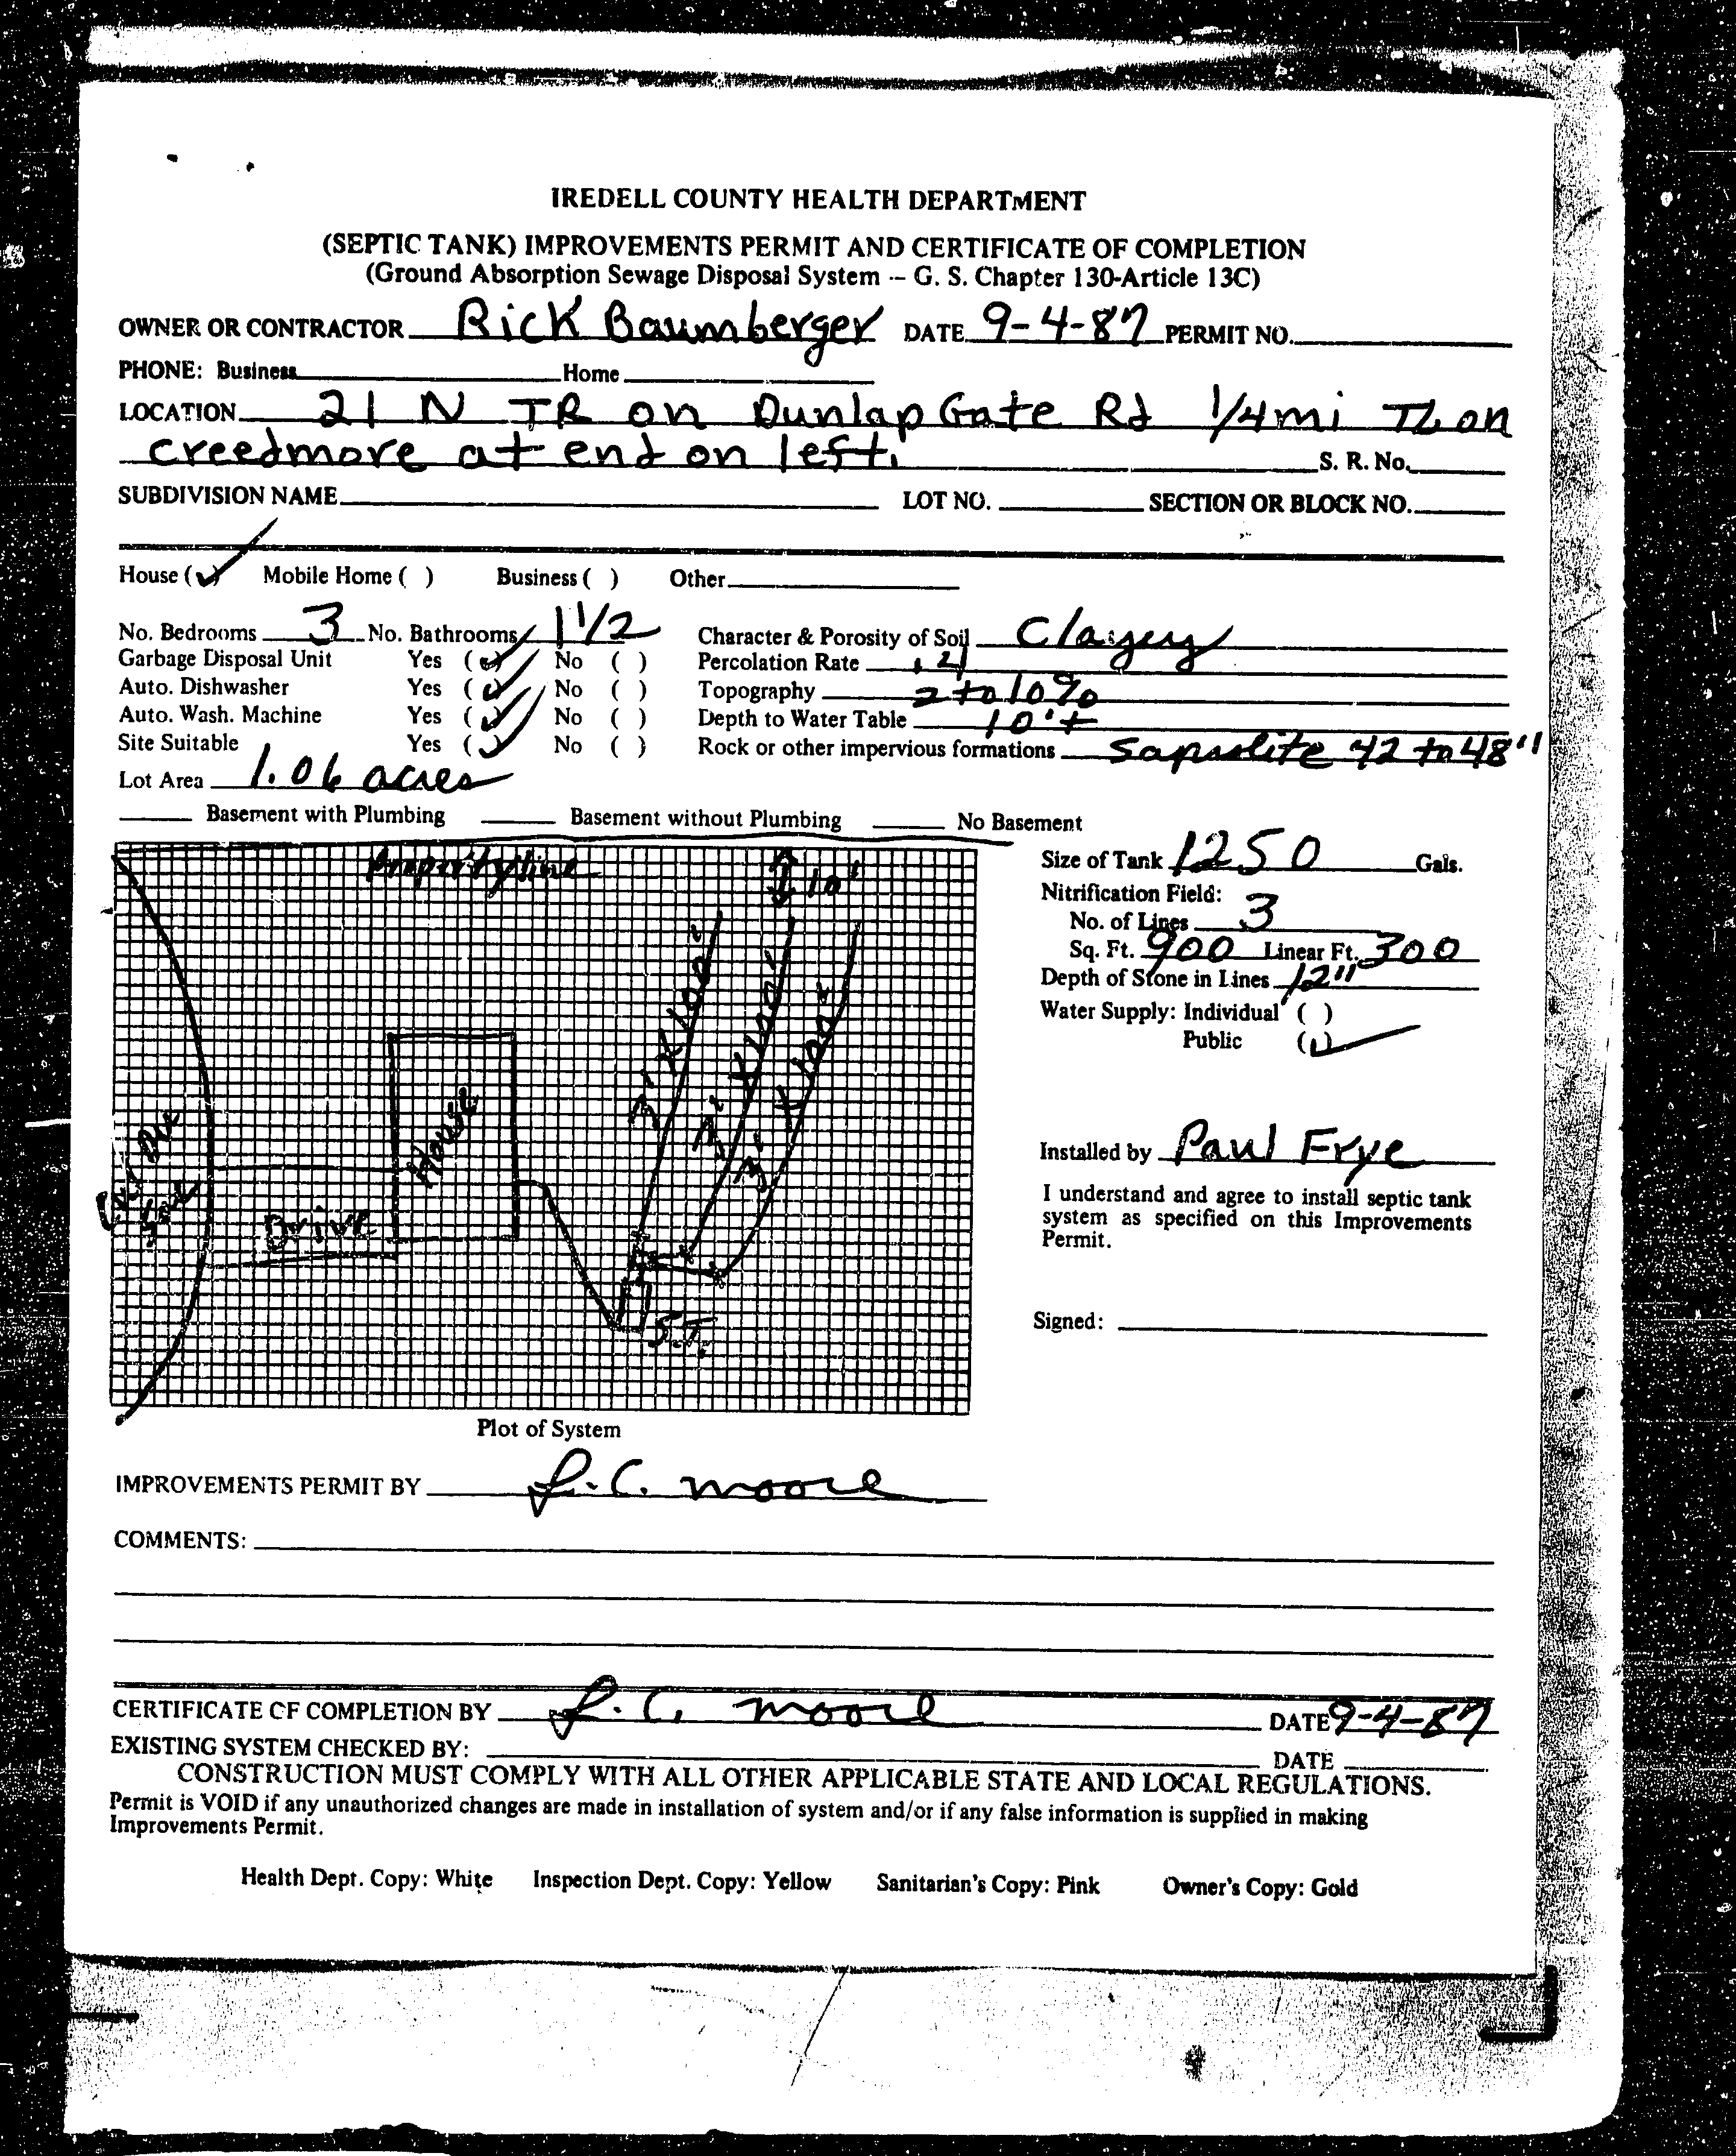 IREDELL COUNTY HEALTH DEPARTMENT
(SEPTIC TANK) IMPROVEMENTS PERMIT AND CERTIFICATE OF COMPLETION
(Ground Absorption Sewage Disposal System -- G. S. Chapter 130-Article 13C)
OWNER OR CONTRACTOR Rick Baumberger DATE 9-4-87 PERMIT NO.
PHONE: Business Home
LOCATION 21 N TR on Dunlap Gate Rd 1/4 mi TL on
creedmore at end on left.
S. R. No.
SUBDIVISION NAME LOT NO. SECTION OR BLOCK NO.
House (✓) Mobile Home ( ) Business ( ) Other
No. Bedrooms 3 No. Bathrooms 1 1/2 Character & Porosity of Soil Clayey
Garbage Disposal Unit Yes (✓) No ( ) Percolation Rate .21
Auto. Dishwasher Yes (✓) No ( ) Topography 2 to 10%
Auto. Wash. Machine Yes (✓) No ( ) Depth to Water Table 10'+
Site Suitable Yes (✓) No ( ) Rock or other impervious formations Saprolite 42 to 48"
Lot Area 1.06 acres
Basement with Plumbing Basement without Plumbing No Basement
Property line
10'
3' X 100'
3' X 100'
3' X 100'
House
Drive
S.T.
Size of Tank 1250 Gals.
Nitrification Field:
No. of Lines 3
Sq. Ft. 900 Linear Ft. 300
Depth of Stone in Lines 12"
Water Supply: Individual ( )
Public (✓)
Installed by Paul Frye
I understand and agree to install septic tank
system as specified on this Improvements
Permit.
Signed:
Plot of System
IMPROVEMENTS PERMIT BY L.C. Moore
COMMENTS:
CERTIFICATE OF COMPLETION BY L.C. Moore DATE 9-4-87
EXISTING SYSTEM CHECKED BY: DATE
CONSTRUCTION MUST COMPLY WITH ALL OTHER APPLICABLE STATE AND LOCAL REGULATIONS.
Permit is VOID if any unauthorized changes are made in installation of system and/or if any false information is supplied in making
Improvements Permit.
Health Dept. Copy: White Inspection Dept. Copy: Yellow Sanitarian's Copy: Pink Owner's Copy: Gold